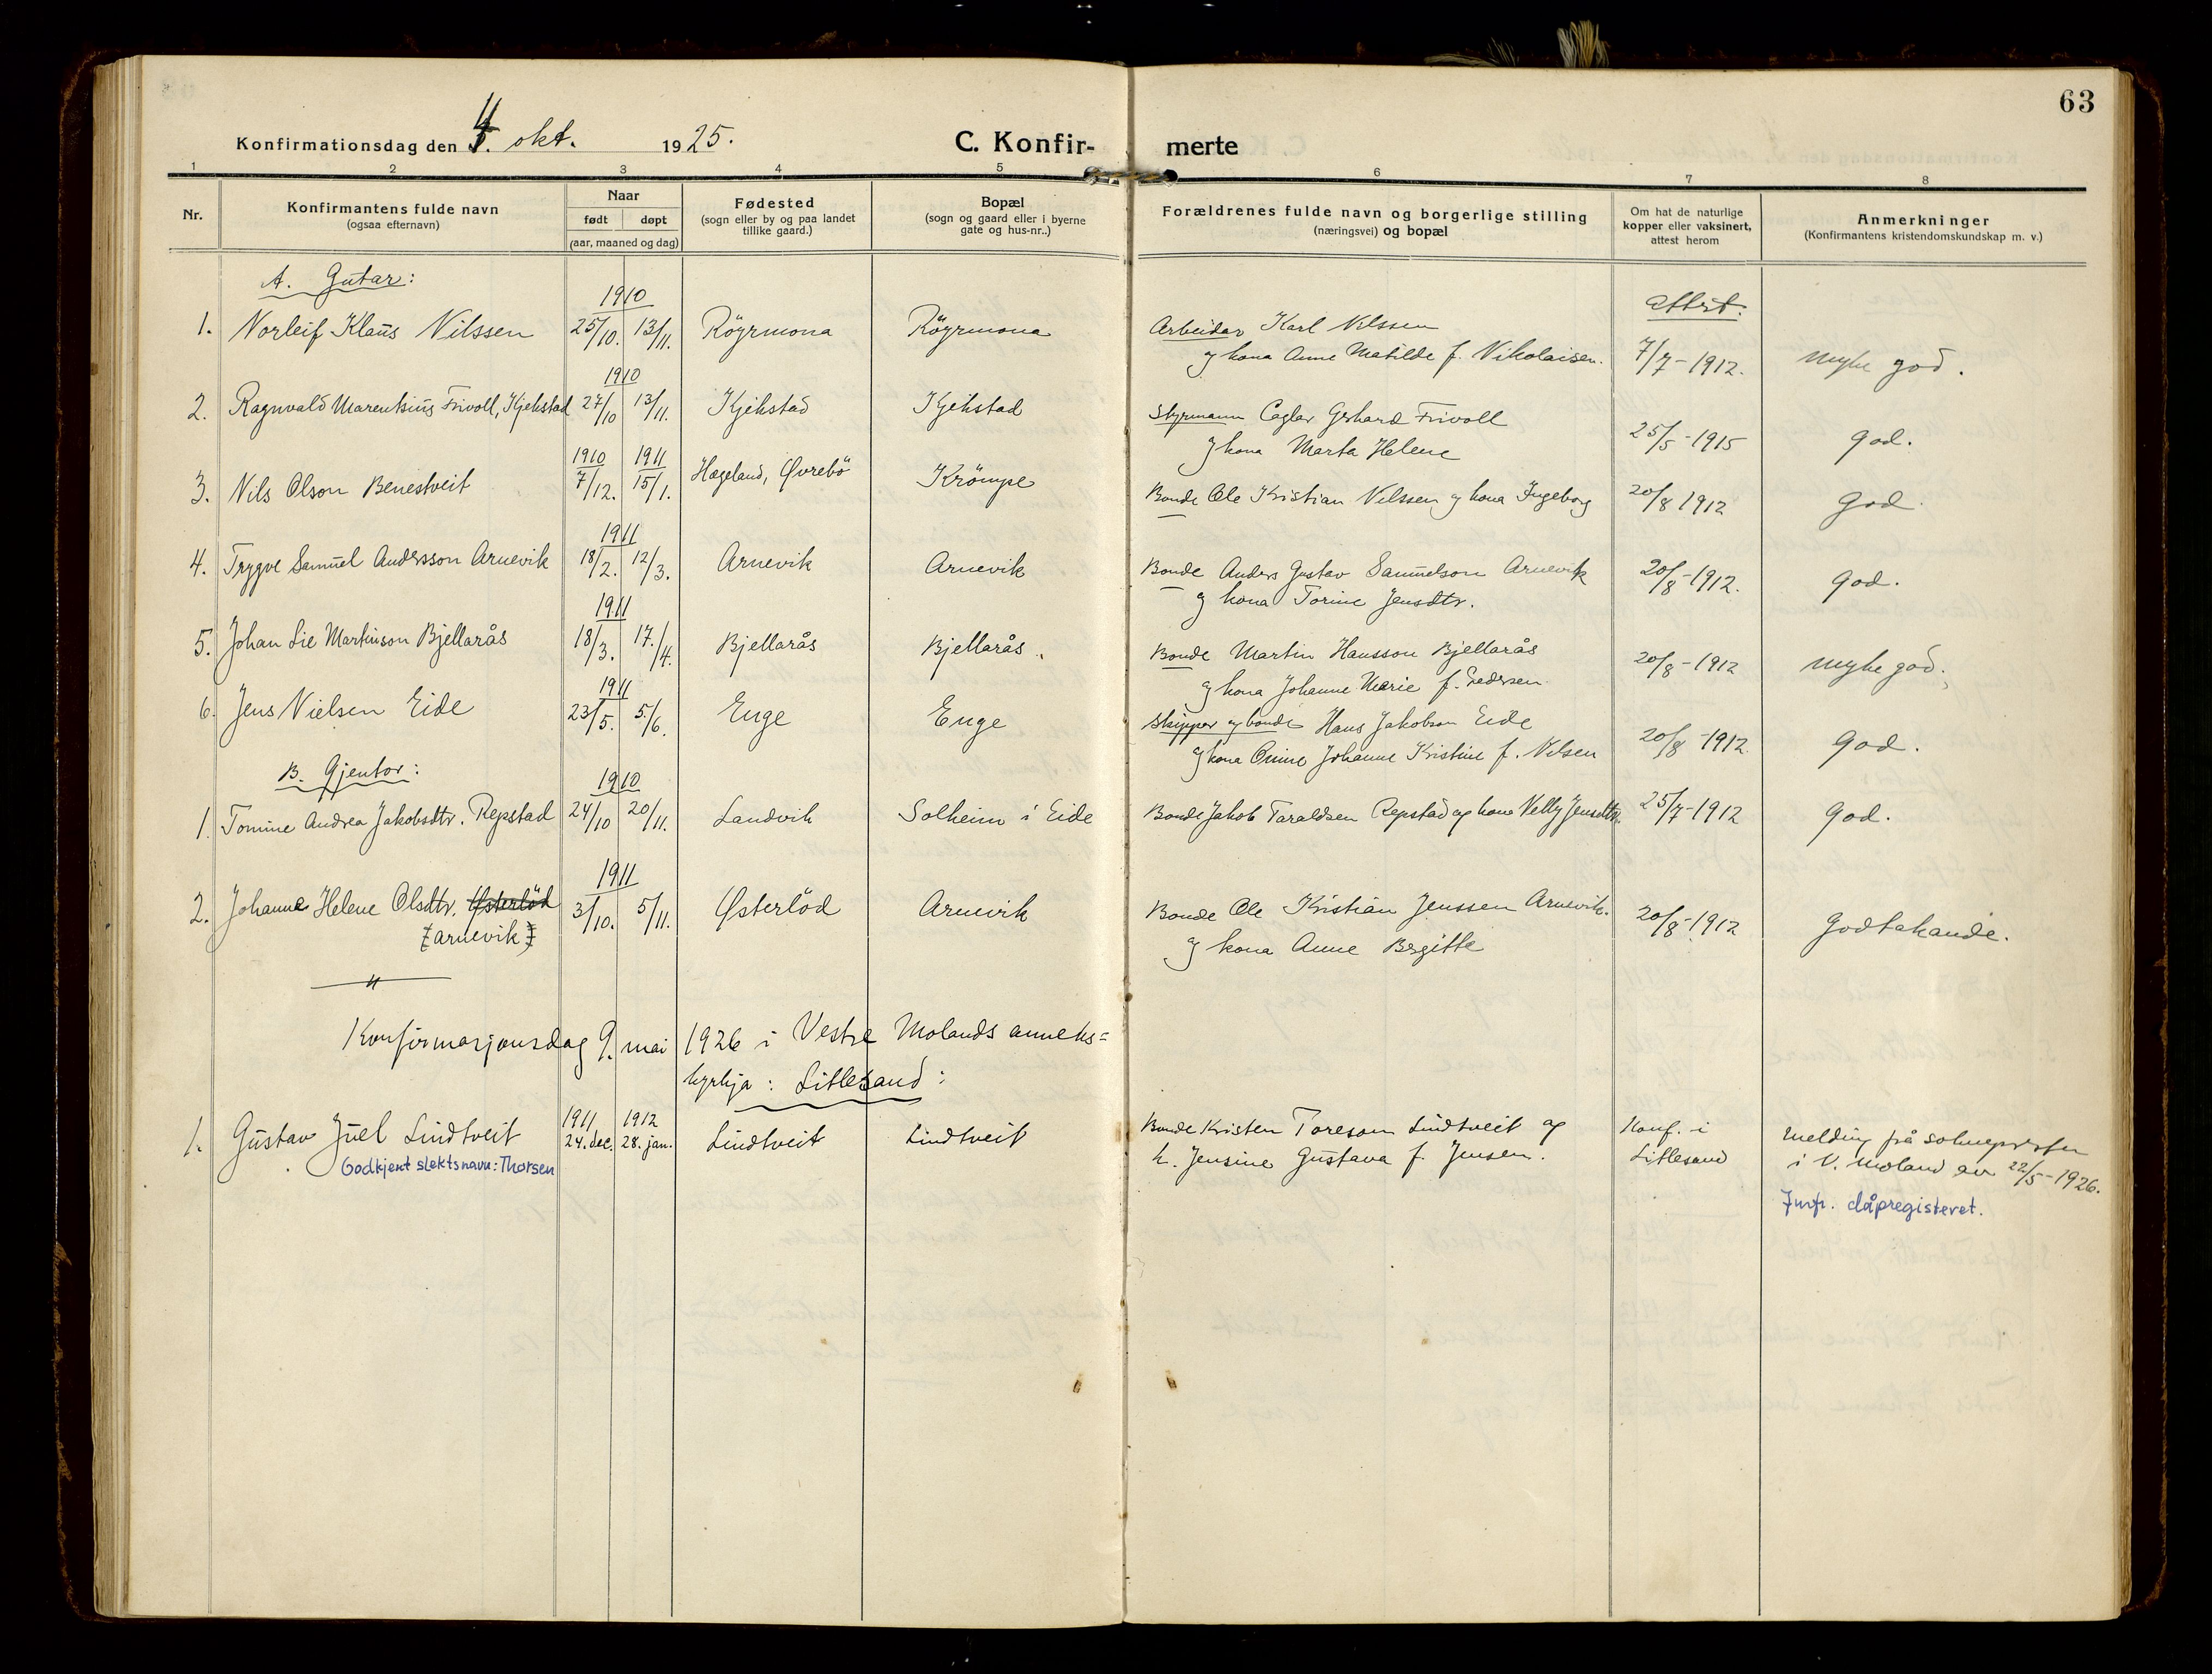 63
Konfirmationsdag den 4. okt. 1925. C. Konfir- merte
1 2 3 4 5 6 7 8
Nr. Konfirmantens fulde navn (ogsaa efternavn) Naar født døpt (aar, maaned og dag) Fødested (sogn eller by og paa landet tillike gaard.) Bopæl (sogn og gaard eller i byerne gate og hus-nr..) Forældrenes fulde navn og borgerlige stilling (næringsvei) og bopæl Om hat de naturlige kopper eller vaksinert, attest herom Anmerkninger (Konfirmantens kristendomskundskap m. v.)
A. Gutar:
1910 attest:
1. Norleif Klaus Nilssen 25/10. 13/11. Röyrmona Röyrmona Arbeidar Karl Nilssen
og kona Anne Matilde f. Nikolaisen. 7/7-1912. mykje god.
1910
2. Ragnvald Marentsius Frivoll, Kjekstad 27/10 13/11. Kjekstad Kjekstad Styrmann Gerhard Frivoll
og kona Marta Helene 25/5-1915 god.
1910 1911
3. Nils Olson Benestveit 7/12. 15/1. Hægeland, Øvrebö Krömpe Bonde Ole Kristian Nilssen og kona Ingeborg 20/8 1912 god.
1911
4. Trygve Samuel Andersson Arnevik 18/2. 12/3. Arnevik Arnevik Bonde Anders Gustav Samuelson Arnevik
og kona Torine Jensdtr. 20/8-1912. god.
1911
5. Johan Lie Martinson Bjellarås 18/3. 17./4. Bjellarås Bjellarås. Bonde Martin Hansson Bjellarås
og kona Johanne Marie f. Pedersen. 20/8-1912 mykje god.
1911
6. Jens Nielsen Eide 23/5. 5./6. Enge Enge Skipper og bonde Hans Jakobson Eide
og kona Johanne Kristine f. Nilsen 20/8-1912. god.
B. Gjentor:
1910
1. Tomine Andrea Jakobsdtr. Repstad 24/10 20/11. Landvik Solheim i Eide Bonde Jakob Taraldsen Repstad og kona Nelly Jensdtr. 25/7-1912 god.
1911
2. Johanne Helene Olsdtr. Østerlöd 3/10. 5/11. Østerlöd Arnevik Bonde Ole Kristian Jenssen Arnevik.
(Arnevik) og kona Anne Bergitte 20/8-1912 Godtakande.
Konfirmasjonsdag 9. mai 1926 i Vestre Molands anneks=
kyrkja: Lillesand:
1911 1912
1. Gustav Juel Lindtveit 24. dec. 28. jan. Lindtveit Lindtveit Bonde Kristen Toresson Lindtveit og
k. Jensine Gustava f. Jensen. Konf. i
Lillesand Melding frå soknepresten
i V. Moland av 22/5-1926.
Godkjent slektsnavn: Thorsen
Jmfr. dåpregisteret.